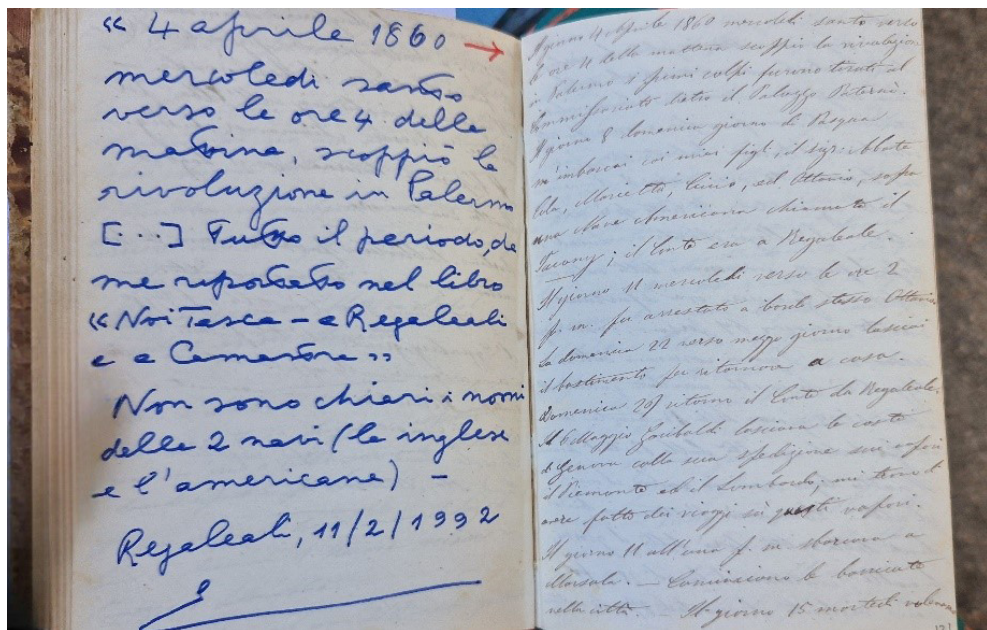 « 4 aprile 1860 →
mercoledi santo
verso le ore 4 della
mattina, scoppiò la
rivoluzione in Palermo
[...] Tutto il periodo, da
me riportato nel libro
« Noi Tasca – a Regaleali
e a Camastra »
Non sono chiari i nomi
delle 2 navi (la inglese
e l'americana) –
Regaleali, 11/2/1992
Il giorno 4 Aprile 1860 mercoledi santo verso
le ore 4 della mattina scoppio la rivoluzione
in Palermo i primi colpi furono tirati al
Commissariato dietro il Palazzo
Il giorno 8 domenica giorno di Pasqua
m'imbarcai coi miei figli, il sig: Abbate
Lola, Marietta, Ciccio, ed Ottavio, sopra
una Nave Americana chiamata il
; il Conte era a Regaleale.
Il giorno 11 mercoledi verso le ore 2
p. m. fu arrestato a bordo stesso Ottavio
La domenica 22 verso mezzo giorno lasciai
il bastimento per ritornare a casa.
Domenica 29 ritorno il Conte da Regaleale.
Il 6 Maggio Garibaldi lasciava la costa
di Genova colla sua spedizione sui vapori
il Piemonte ed il Lombardo; mi
avere fatto dei viaggi su questi vapori.
Il giorno 11 all'una p. m. sbarcava a
Marsala. — Cominciano le barricate
nella città. — Il giorno 15 martedi
121